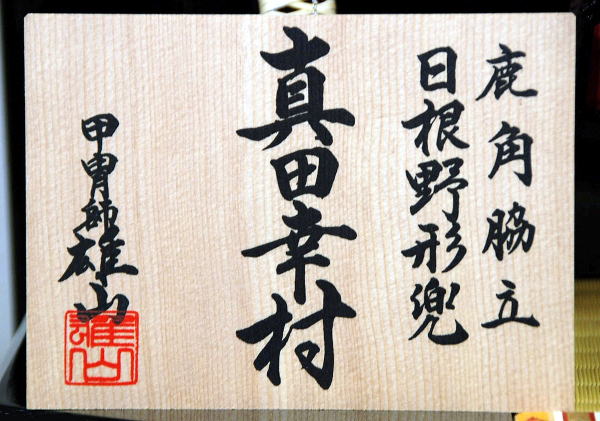 鹿角脇立
日根野形兜
真田幸村
甲冑師雄山
雄山